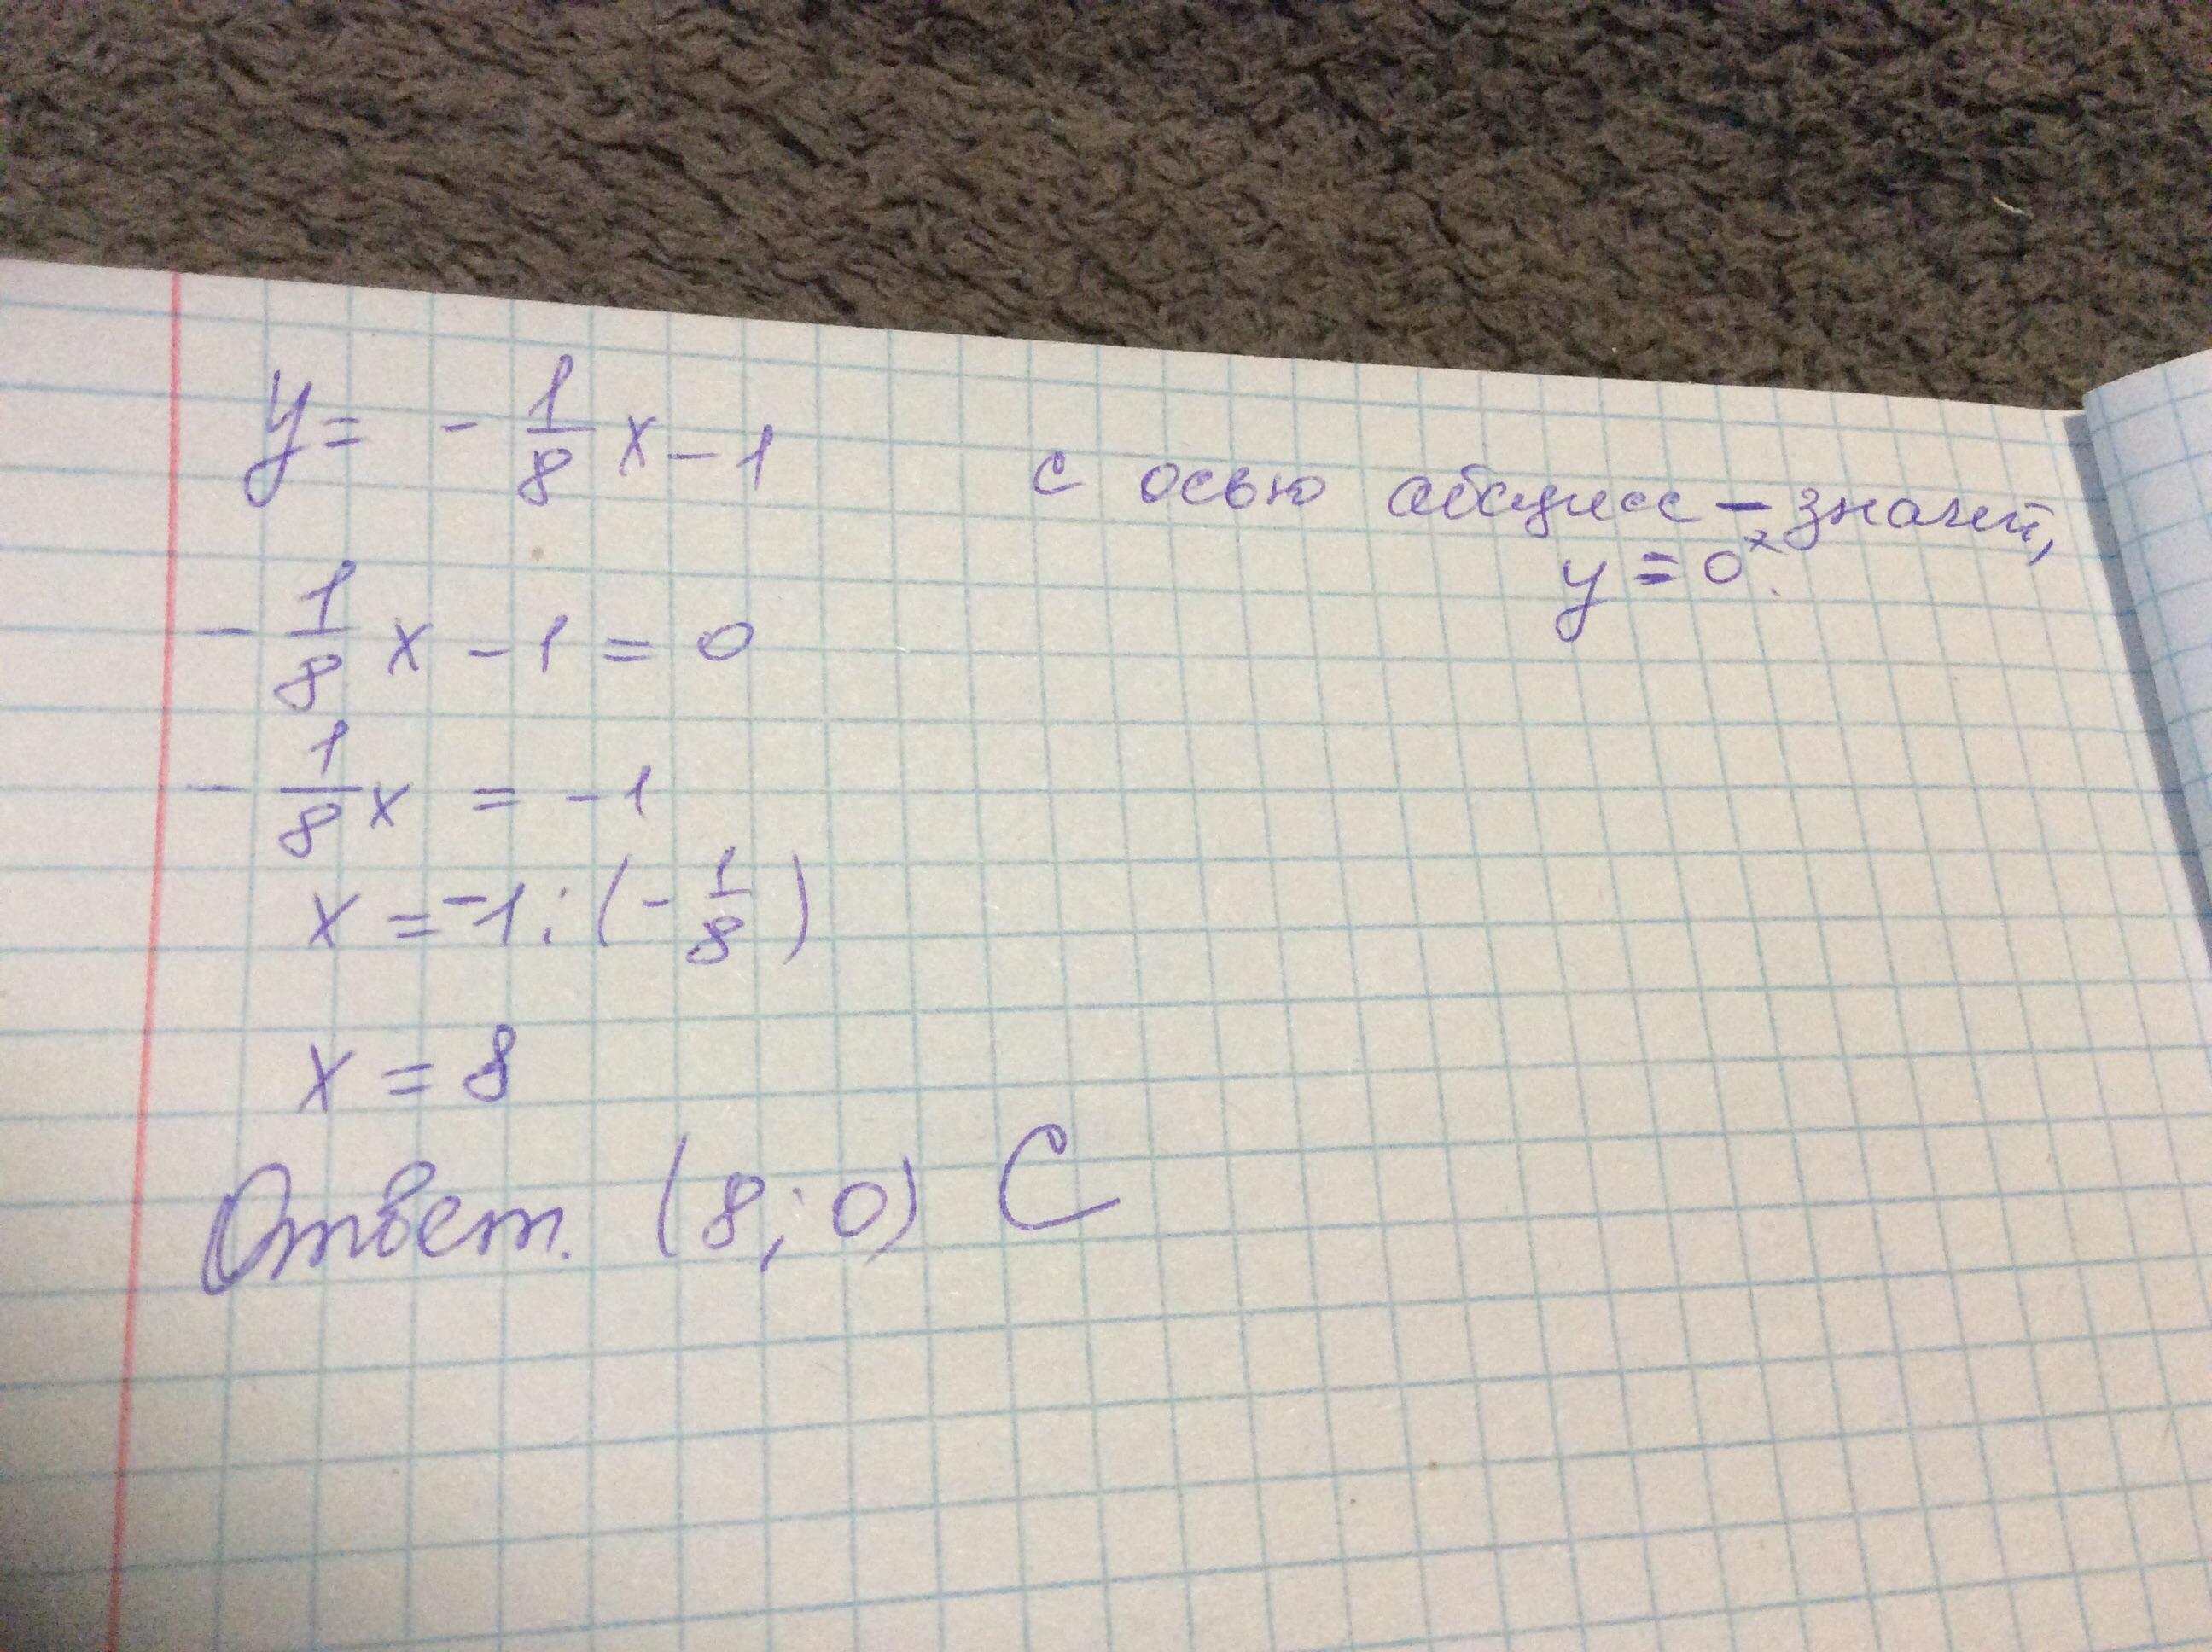 y = - 1/8 x - 1
с осью абсцисс - значит,
y = 0
- 1/8 x - 1 = 0
- 1/8 x = -1
x = -1 : (- 1/8)
x = 8
Ответ. (8; 0) C